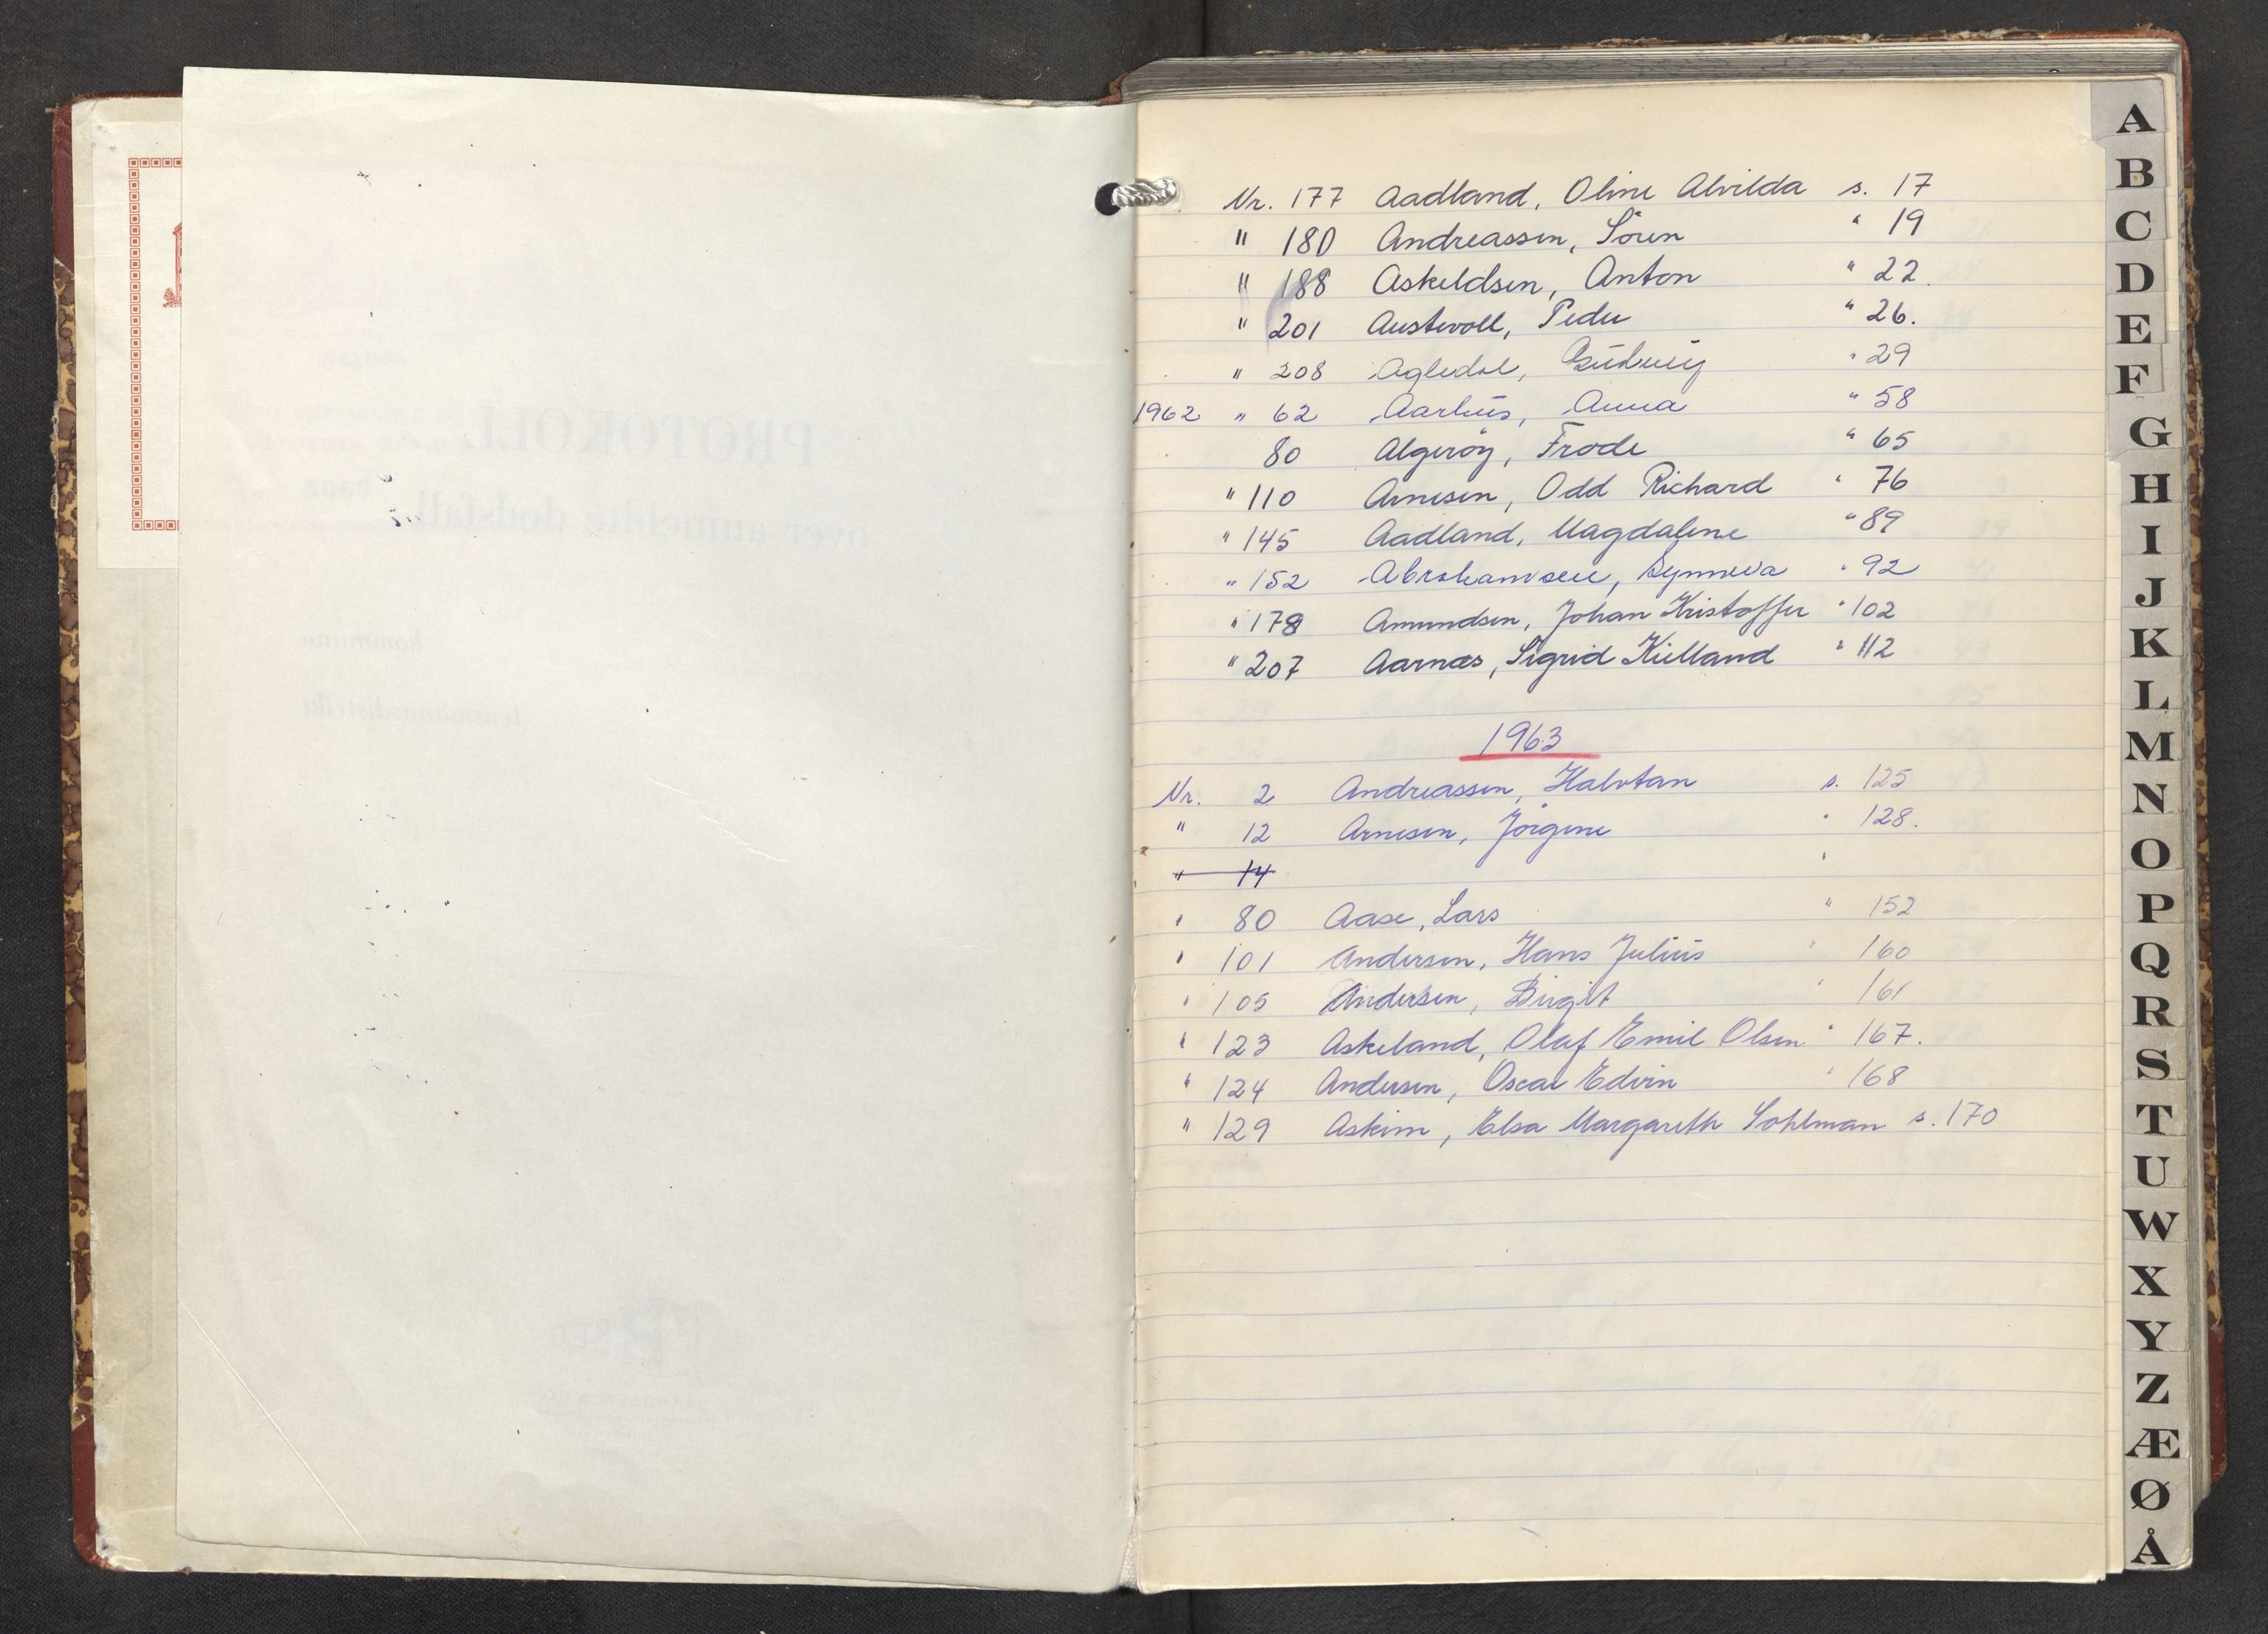 Nr. 177 Aadland, Oline Alvilda s. 17
" 180 Andreassen, Sören " 19
" 188 Askeldsen, Anton " 22.
" 201 Austevoll, Peder " 26.
" 208 Agledal, " 29
1962 " 62 Aarhus, Anna " 58
80 Algeröy, Frode " 65
" 110 Arnesen, Odd Richard " 76
" 145 Aadland, Magdalene " 89
" 152 Abrahamsen, Synneva " 92
" 178 Amundsen, Johan Kristoffer " 102
" 207 Aarnæs, Sigrid Kielland " 112
1963
Nr. 2 Andreassen, Halvtan s. 125
" 12 Arnesen, Jörgine " 128.
" 14 "
" 80 Aase, Lars " 152
" 101 Andersen, Hans Julius " 160
" 105 Andersen, Birgit " 161
" 123 Askeland, Olaf Emil Olsen " 167.
" 124 Andersen, Oscar Edvin " 168
" 129 Askim, Elsa Margareth Sohlman s. 170
A
B
C
D
E
F
G
H
I
J
K
L
M
N
O
P
Q
R
S
T
U
W
X
Y
Z
Æ
Ø
Å